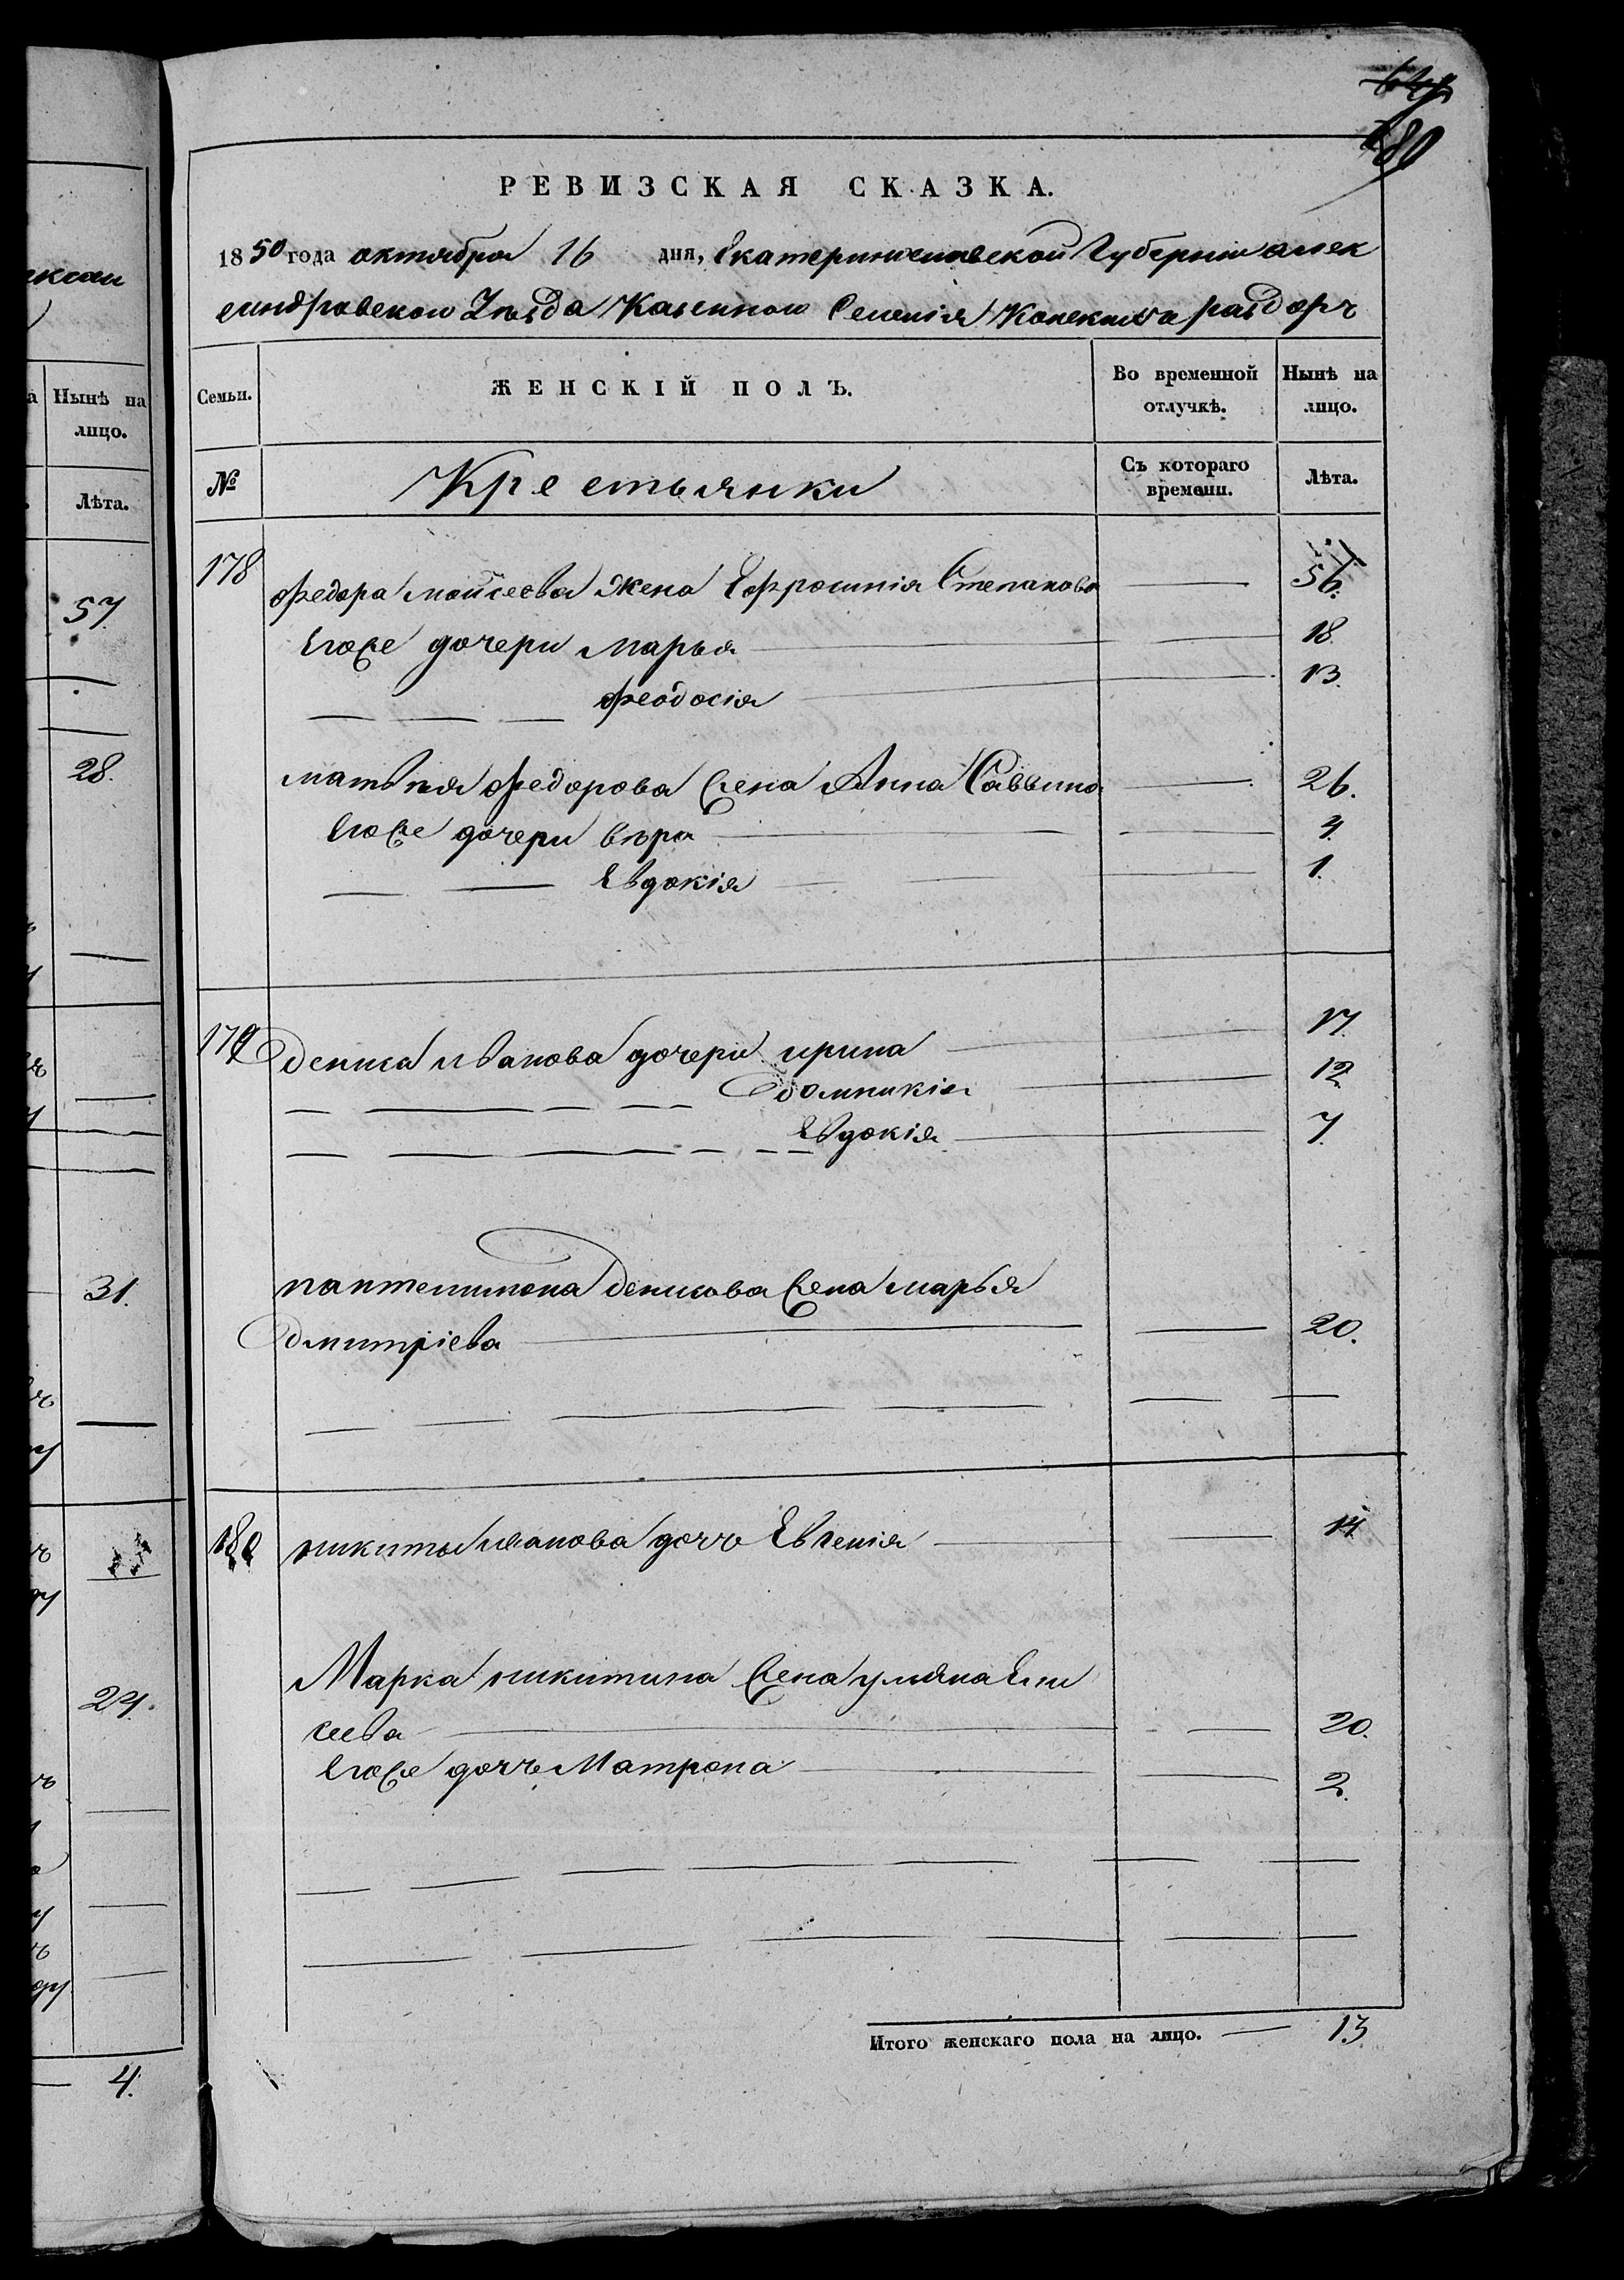 180
РЕВИЗСКАЯ СКАЗКА.
1850 года октября 16 дня, Екатеринославской Губернии алек
сандровского Уезда Казенного Селения раздоръ
Семьи. ЖЕНСКІЙ ПОЛЪ. Во временной отлучкѣ. Нынѣ на лицо.
№ Крестьянки Съ котораго времени. Лѣта.
178 Федора Мойсеева жена Ефросинія Степанова 56.
Егоже дочери марья 18.
Феодосія 13.
матвѣя Федорова жена Анна Саввина 26.
Егоже дочери вѣра 4.
Евдокія 1.
179 Дениса иванова дочери ирина 17.
Домникія 12
Евдокія 7.
пантелимона Денисова жена марья
Дмитріева 20.
180 никиты иванова дочь Евгенія 14
Марка никитина жена ульяна Ели
сеева 20.
Егоже дочь Матрона 2.
Итого женскаго пола на лицо. 13
Нынѣ на
лицо.
Лѣта.
57
28.
31.
4.